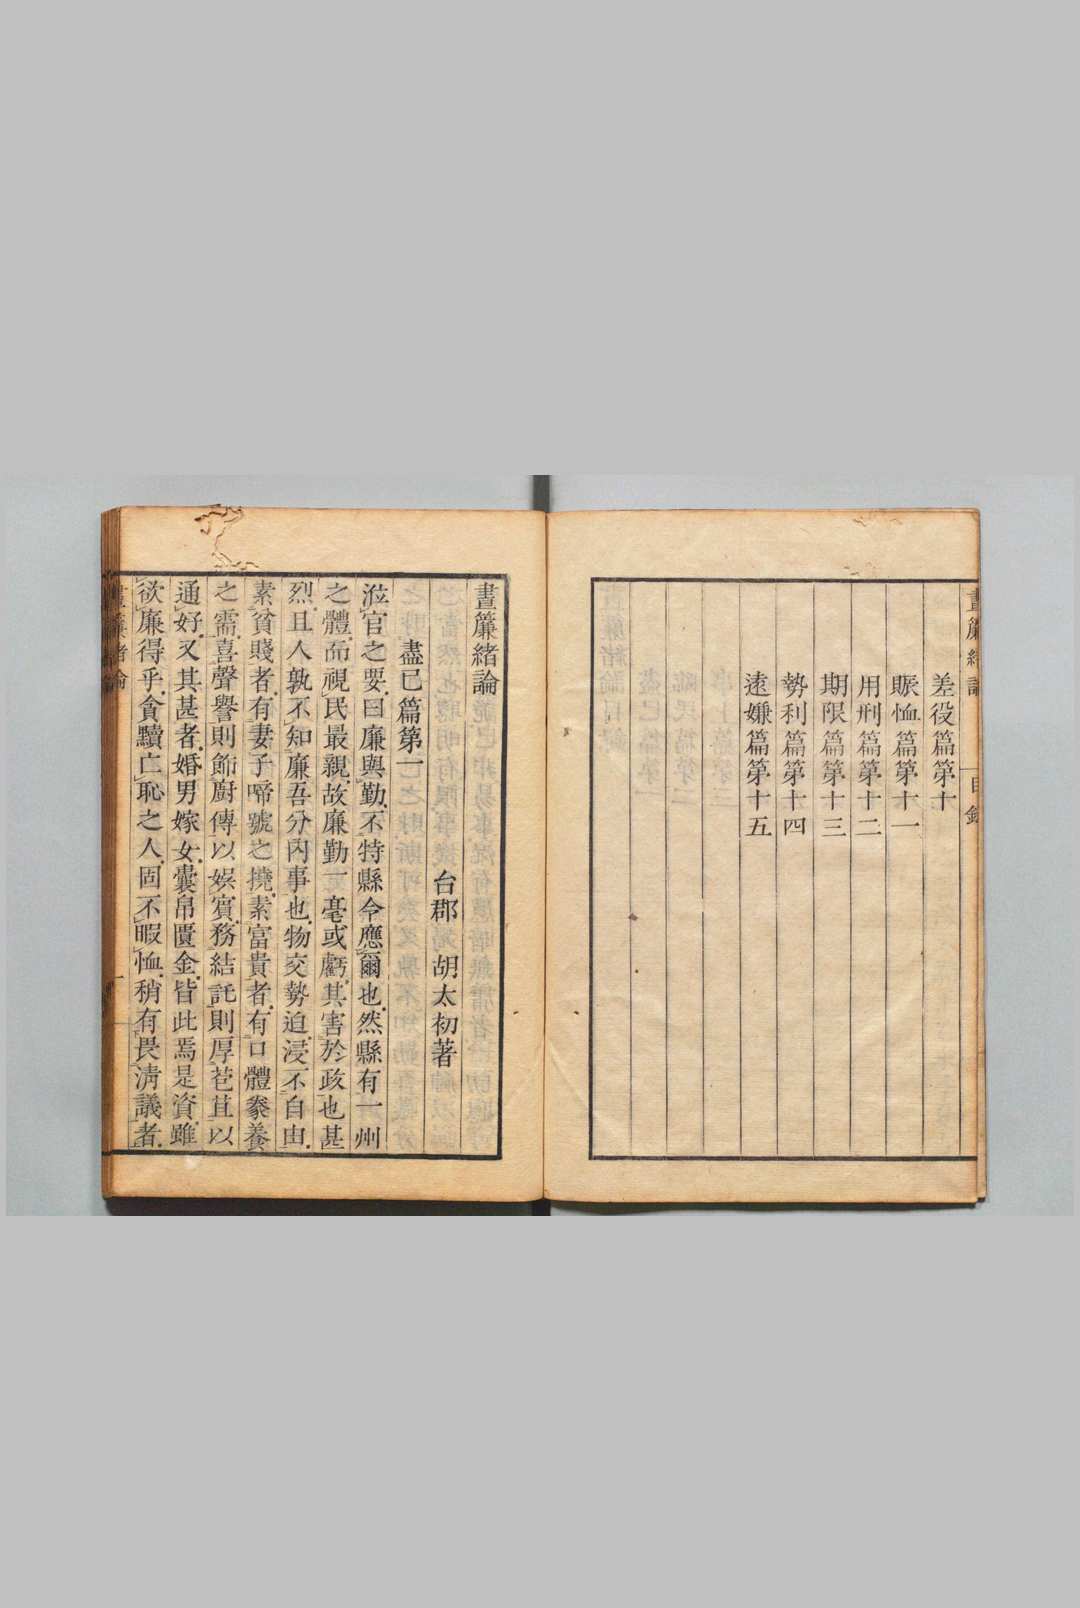 晝簾緒論
目錄
差役篇第十
賑恤篇第十一
用刑篇第十二
期限篇第十三
勢利篇第十四
遠嫌篇第十五
晝簾緒論
台郡胡太初著
盡己篇第一
涖官之要曰廉與勤不特縣令應爾也然縣有一州
之體而視民最親故廉勤一毫或虧其害於政也甚
烈且人孰不知廉吾分內事也物交勢迫浸不自由
素貧賤者有妻子啼號之撓素富貴者有口體豢養
之需喜聲譽則飾廚傳以娛賓務結託則厚苞苴以
通好又其甚者婚男嫁女囊帛匱金皆此焉是資雖
欲廉得乎貪黷亡恥之人固不暇恤稍有畏淸議者
晝簾緒論
一